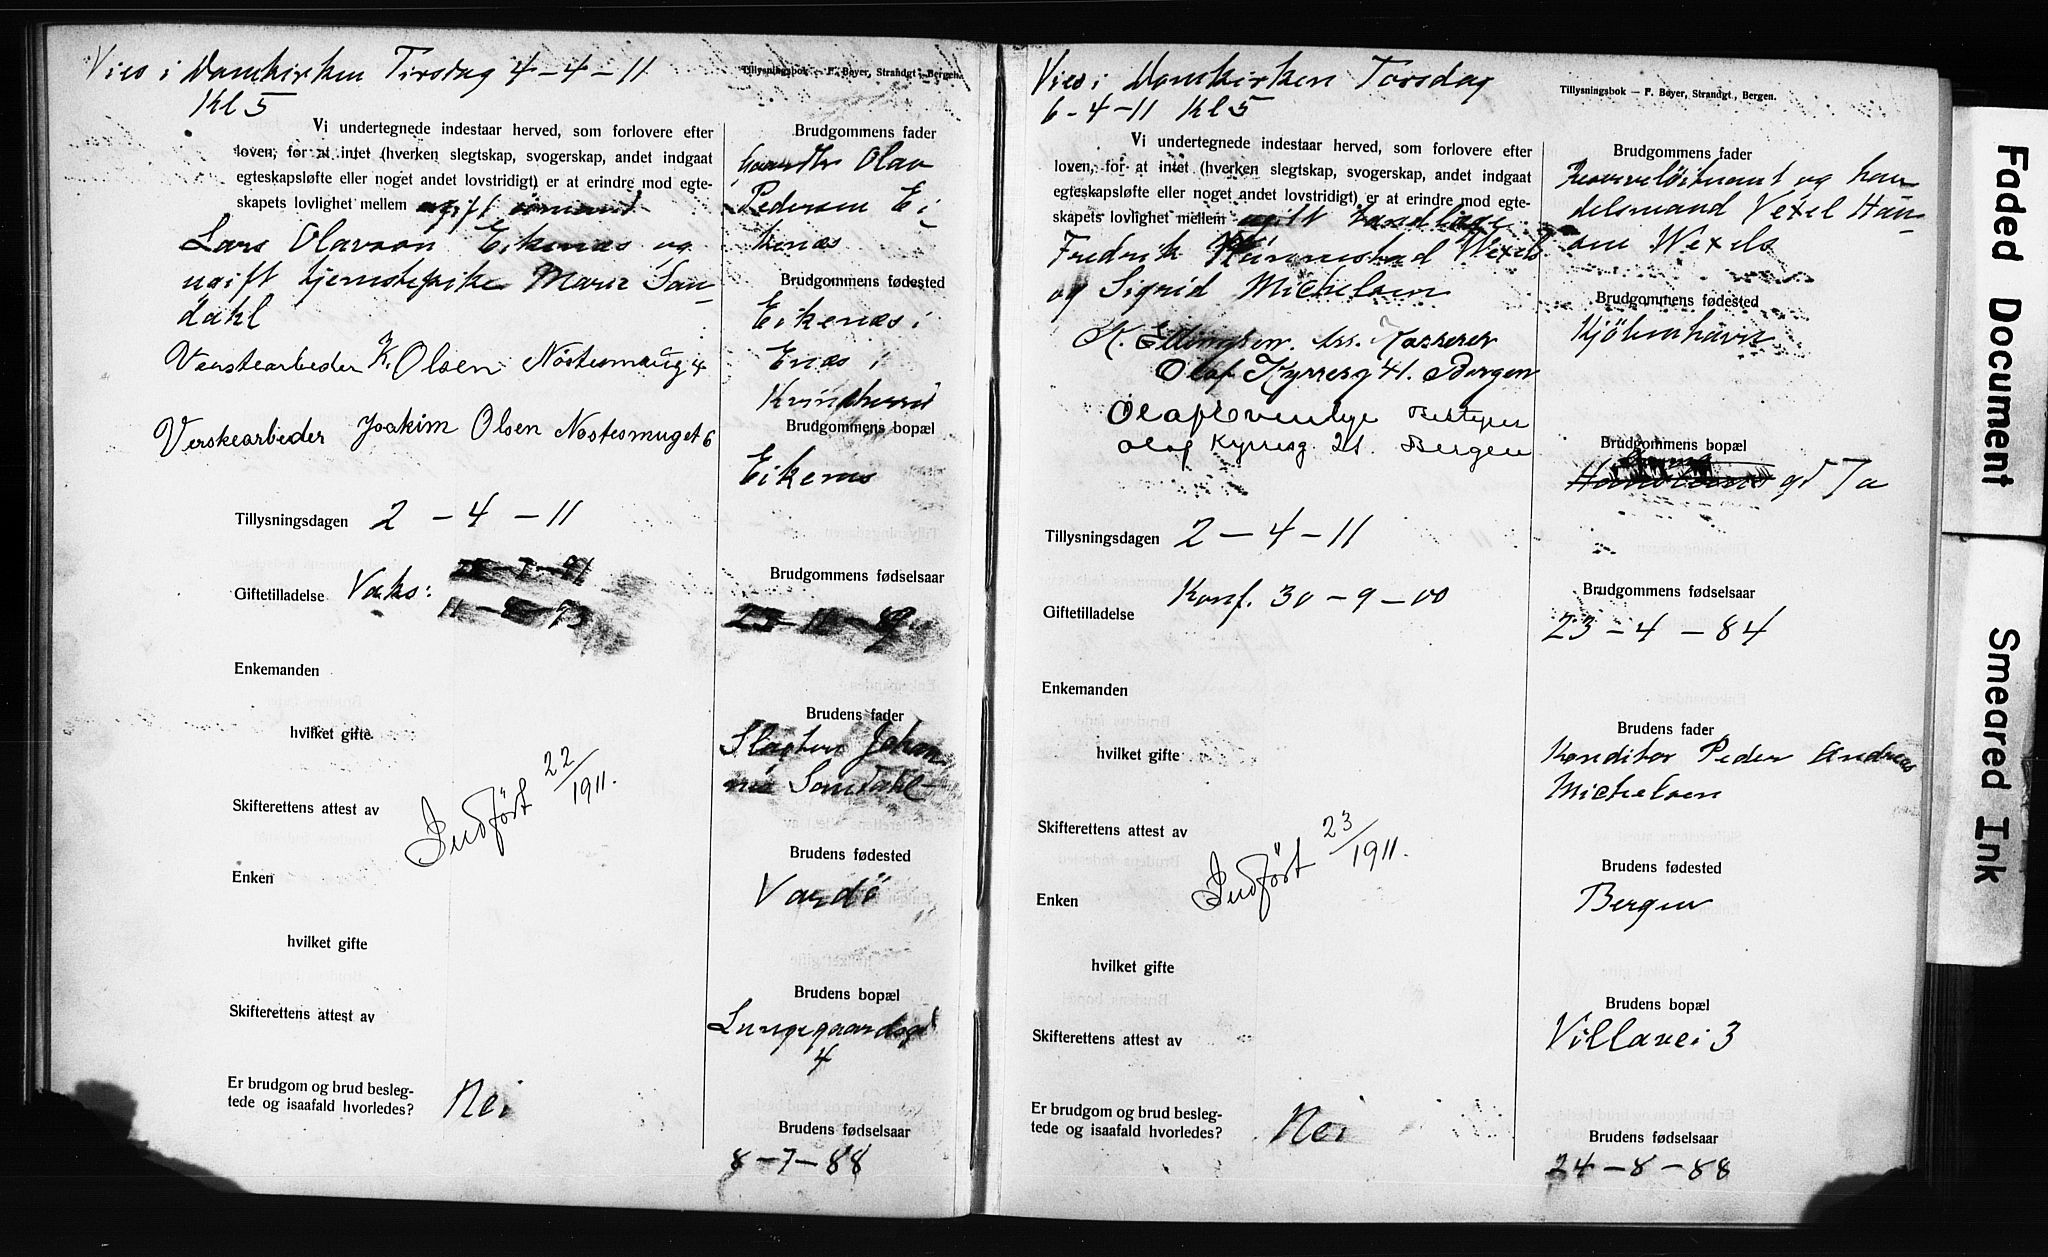 Vies i Domkirken Tirsdag 4-4-11
Kl 5
Tillysningsbok — F. Beyer, Strandgt., Bergen.
Vi undertegnede indestaar herved, som forlovere efter
loven, for at intet (hverken slegtskap, svogerskap, andet indgaat
egteskapsløfte eller noget andet lovstridigt) er at erindre mod egte-
skapets lovlighet mellem ugift
Lars Olavson Eikenæs og
ugift tjenestepike Marie San-
dahl
K. Olsen Nøstesmug 4
Verskearbeder Joakim Olsen Nøstesmuget 6
Tillysningsdagen 2-4-11
Giftetilladelse Vaks:
Enkemanden
hvilket gifte
Skifterettens attest av
Indført 22/1911.
Enken
hvilket gifte
Skifterettens attest av
Er brudgom og brud besleg-
tede og isaafald hvorledes? Nei
Brudgommens fader
Olav
Pedersen Ei-
kenæs
Brudgommens fødested
Eikenæs i
Enæs i
Kvindherred
Brudgommens bopæl
Eikenæs
Brudgommens fødselsaar
Brudens fader
Slagter Johan-
nes Sandahl
Brudens fødested
Vardö
Brudens bopæl
Lungegaardsgt
4
Brudens fødselsaar
8-7-88
Vies i Domkirken Torsdag
6-4-11 Kl 5
Tillysningsbok — F. Beyer, Strandgt., Bergen.
Vi undertegnede indestaar herved, som forlovere efter
loven, for at intet (hverken slegtskap, svogerskap, andet indgaat
egteskapsløfte eller noget andet lovstridigt) er at erindre mod egte-
skapets lovlighet mellem ugift tandlæge
Fredrik Wexels
og Sigrid Michelsen
K. Ellingsen. ass. Kasserer
Olaf Kyrresg 41. Bergen
Olaf
Olaf Kyrresg. 21. Bergen
Tillysningsdagen 2-4-11
Giftetilladelse Konf. 30-9-00
Enkemanden
hvilket gifte
Skifterettens attest av
Indført 23/1911.
Enken
hvilket gifte
Skifterettens attest av
Er brudgom og brud besleg-
tede og isaafald hvorledes? Nei
Brudgommens fader
og han-
delsmand Vexel Han-
sen Wexels
Brudgommens fødested
Kjöbenhavn
Brudgommens bopæl
gt 7a
Brudgommens fødselsaar
23-4-84
Brudens fader
Konditor Peder Andreas
Michelsen
Brudens fødested
Bergen
Brudens bopæl
Villavei 3
Brudens fødselsaar
24-8-88
Faded Document
Smeared Ink